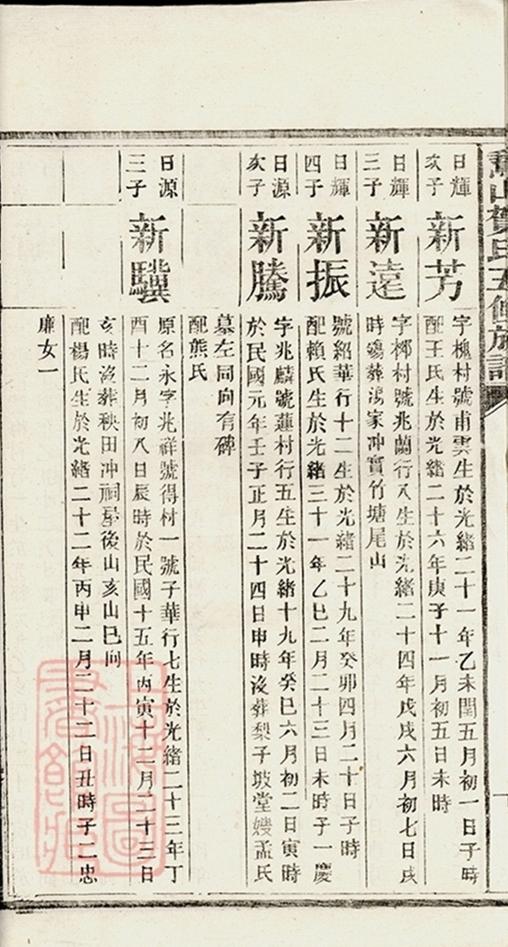 山賀氏五修族譜
日輝次子
新芳
字槐村號甫雲生於光緒二十一年乙未閏五月初一日子時
配王氏生於光緒二十六年庚子十一月初五日未時
日輝三子
新遠
字梛村號兆蘭行八生於光緒二十四年戊戌六月初七日戌
時殤葬湯家冲寶竹塘尾山
日輝四子
新振
號紹華行十二生於光緒二十九年癸卯四月二十日子時
配賴氏生於光緒三十一年乙巳二月二十三日未時子一慶
日源次子
新騰
字兆麟號蓮村行五生於光緒十九年癸巳六月初二日寅時
於民國元年壬子正月二十四日申時沒葬梨子坡堂嫂孟氏
墓左同向有碑
配熊氏
日源三子
新驥
原名永字兆祥號得村一號子華行七生於光緒二十三年丁
酉十二月初八日辰時於民國十五年丙寅十二月二十三日
亥時沒葬秧田冲祠屋後山亥山巳向
配楊氏生於光緒二十二年丙申二月二十二日丑時子二忠
廉女一